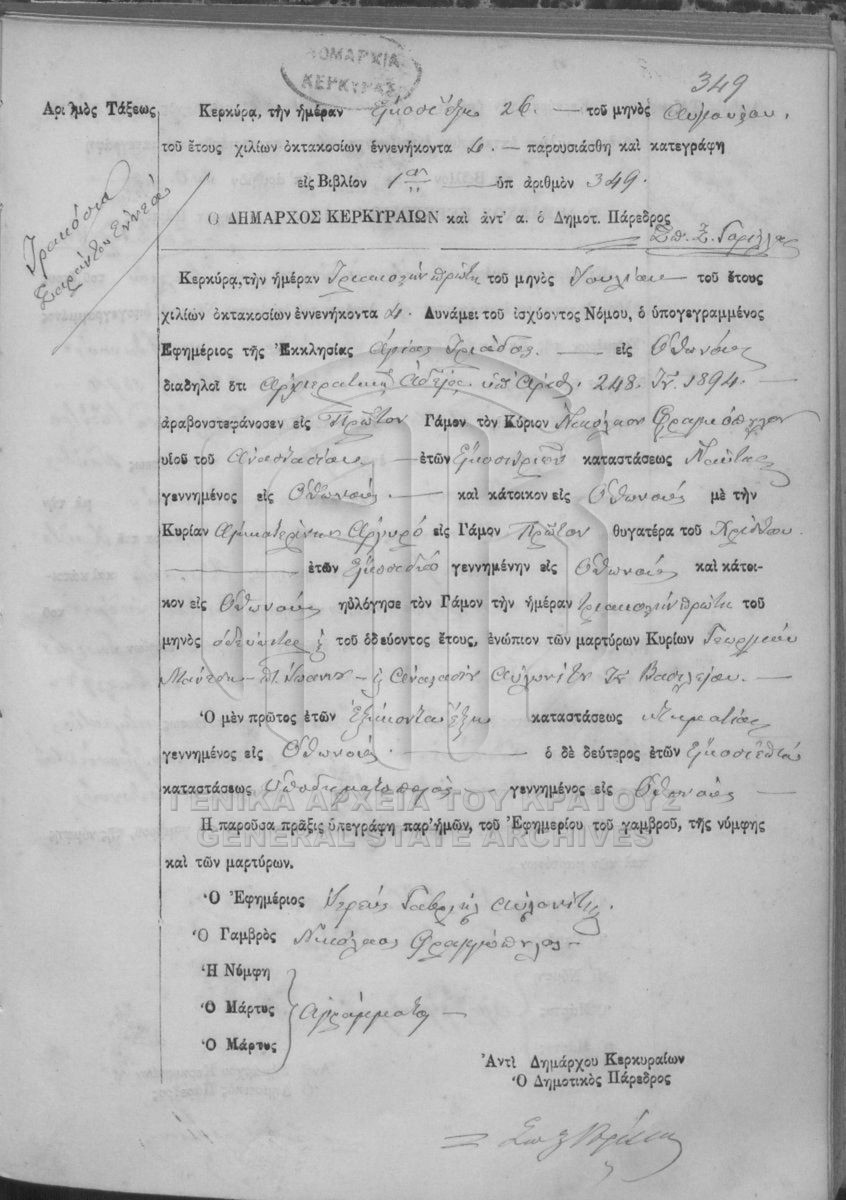 ΝΟΜΑΡΧΙΑ
ΚΕΡΚΥΡΑΣ
349
Αριθμὸς Τάξεως
Τριακόσια
Σαράντα Ἐννέα
Κερκύρᾳ, τὴν ἡμέραν Εἴκοσι ἕξη 26 — τοῦ μηνὸς Αὐγούστου.
τοῦ ἔτους χιλίων ὀκτακοσίων ἐννενήκοντα 4. — παρουσιάσθη καὶ κατεγράφη
εἰς Βιβλίον 1ον — ὑπ ἀριθμὸν 349.
Ὁ ΔΗΜΑΡΧΟΣ ΚΕΡΚΥΡΑΙΩΝ καὶ ἀντ' α. ὁ Δημοτ. Πάρεδρος
Σπ. Σ.
Κερκύρᾳ, τὴν ἡμέραν Τριακοστὴν πρώτη τοῦ μηνὸς Ἰουλίου τοῦ ἔτους
χιλίων ὀκτακοσίων ἐννενήκοντα 4. Δυνάμει τοῦ ἰσχύοντος Νόμου, ὁ ὑπογεγραμμένος
Ἐφημέριος τῆς Ἐκκλησίας Ἁγίας Τριάδος — εἰς Ὀθωνούς
διαδηλοῖ ὅτι Ἀρχιερατικῆς Ἀδείας ὑπ' Ἀριθ. 248. 1894. —
ἀραβονστεφάνοσεν εἰς Πρῶτον Γάμον τὸν Κύριον Νικόλαον Φραγκόπουλον
υἱοῦ τοῦ Ἀναστασίου — ἐτῶν Εἴκοσι τριῶν καταστάσεως Ναύτης
γεννημένος εἰς Ὀθωνούς — καὶ κάτοικον εἰς Ὀθωνούς μὲ τὴν
Κυρίαν Αἰκατερίνην Ἀργυρό εἰς Γάμον Πρῶτον θυγατέρα τοῦ Χρίστου.
— ἐτῶν Εἴκοσι δύο γεννημένην εἰς Ὀθωνούς καὶ κάτοι-
κον εἰς Ὀθωνούς ηὐλόγησε τὸν Γάμον τὴν ἡμέραν τριακοστὴν πρώτη τοῦ
μηνὸς ὁδεύοντος τοῦ ὁδεύοντος ἔτους, ἐνώπιον τῶν μαρτύρων Κυρίων Γεωργίου
Ἰωάννου — Ἀναστασίου Αὐλωνίτη Βασιλείου. —
Ὁ μὲν πρῶτος ἐτῶν Ἑξήκοντα ἕξη καταστάσεως Κτηματίας
γεννημένος εἰς Ὀθωνούς. — ὁ δὲ δεύτερος ἐτῶν Εἴκοσι ἑπτά
καταστάσεως Ὑποδηματοποιός — γεννημένος εἰς Ὀθωνούς —
ΓΕΝΙΚΑ ΑΡΧΕΙΑ ΤΟΥ ΚΡΑΤΟΥΣ
GENERAL STATE ARCHIVES
Ἡ παροῦσα πρᾶξις ὑπεγράφη παρ' ἡμῶν, τοῦ Ἐφημερίου τοῦ γαμβροῦ, τῆς νύμφης
καὶ τῶν μαρτύρων.
Ὁ Ἐφημέριος Ἱερεύς Γαβριήλ Αὐλωνίτης.
Ὁ Γαμβρὸς Νικόλαος Φραγκόπουλος —
Ἡ Νύμφη
Ὁ Μάρτυς Ἀγράμματοι —
Ὁ Μάρτυς
Ἀντὶ Δημάρχου Κερκυραίων
Ὁ Δημοτικὸς Πάρεδρος